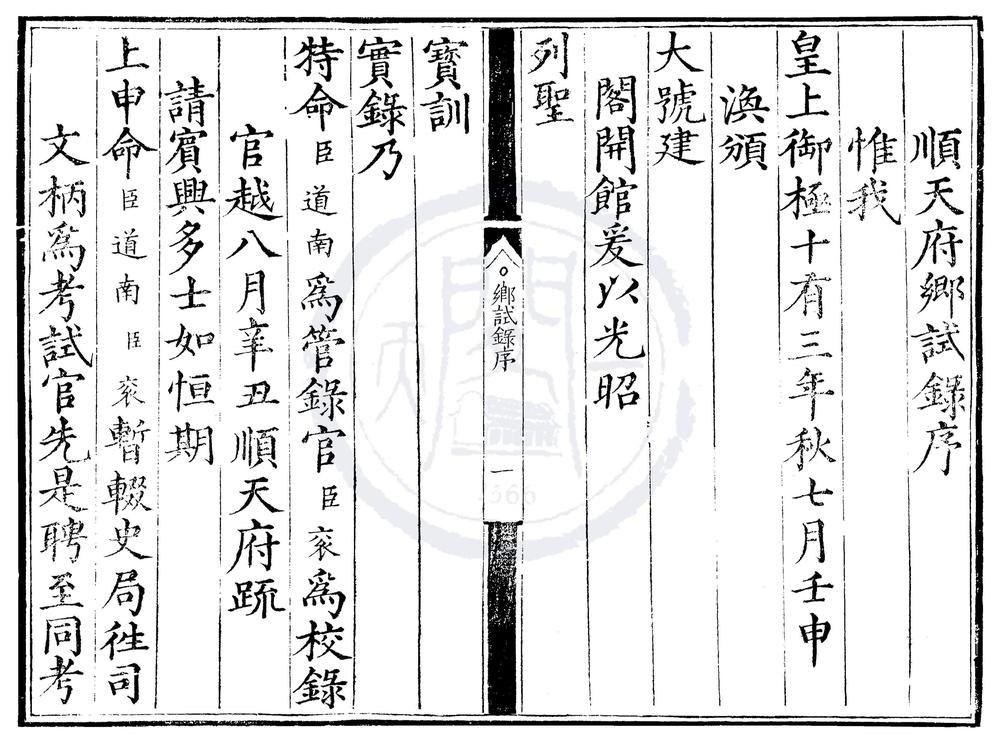 順天府鄉試錄序
惟我
皇上御極十有三年秋七月壬申
渙頒
大號建
閣開館爰以光昭
列聖
鄉試錄序
一
寶訓
實錄乃
特命臣道南爲管錄官臣袞爲校錄
官越八月辛丑順天府疏
請賓興多士如恒期
上申命臣道南臣袞暫輟史局徃司
文柄爲考試官先是聘至同考